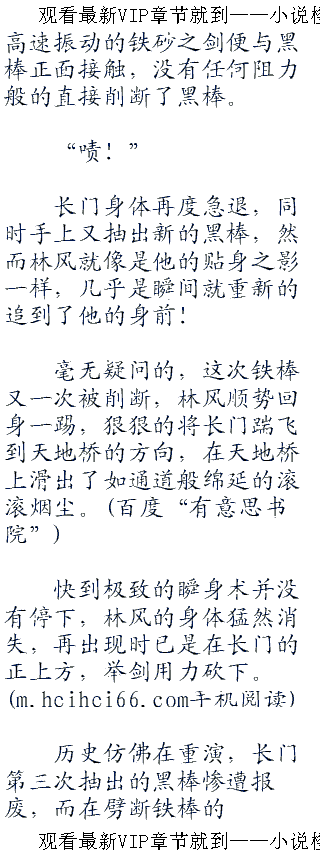 观看最新VIP章节就到——小说
高速振动的铁砂之剑便与黑
棒正面接触，没有任何阻力
般的直接削断了黑棒。
“啧！”
长门身体再度急退，同
时手上又抽出新的黑棒，然
而林风就像是他的贴身之影
一样，几乎是瞬间就重新的
追到了他的身前！
毫无疑问的，这次铁棒
又一次被削断，林风顺势回
身一踢，狠狠的将长门踹飞
到天地桥的方向，在天地桥
上滑出了如通道般绵延的滚
滚烟尘。(百度“有意思书
院”)
快到极致的瞬身术并没
有停下，林风的身体猛然消
失，再出现时已是在长门的
正上方，举剑用力砍下。
(m.hcihci66.com手机阅读)
历史仿佛在重演，长门
第三次抽出的黑棒惨遭报
废，而在劈断铁棒的
观看最新VIP章节就到——小说